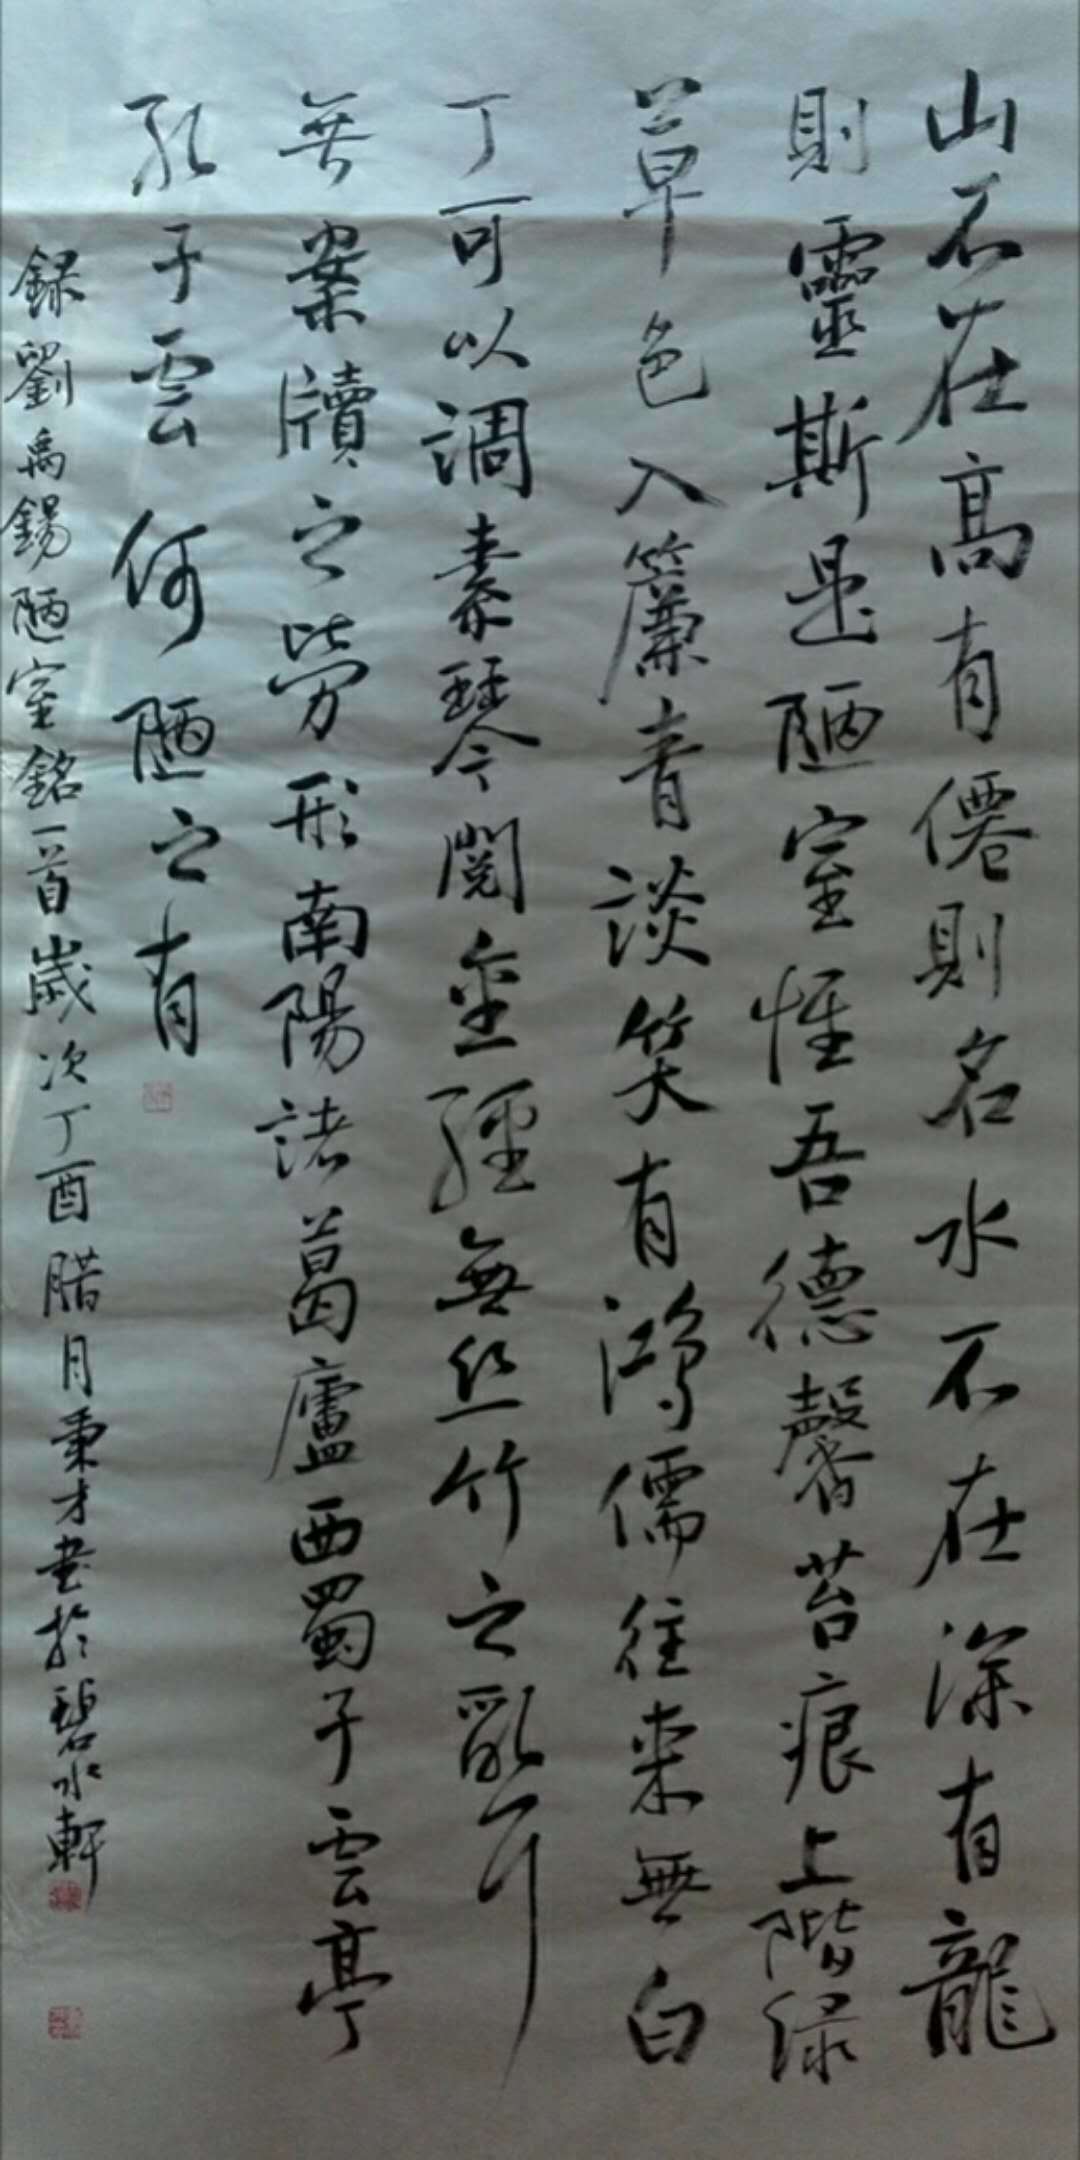 山不在高有僊則名水不在深有龍
則靈斯是陋室惟吾德馨苔痕上階綠
草色入簾青談笑有鴻儒往來無白
丁可以調素琴閱金經無丝竹之亂耳
無案牘之勞形南陽諸葛廬西蜀子雲亭
孔子雲何陋之有
錄劉禹錫陋室銘一首歲次丁酉腊月秉才書於碧水軒